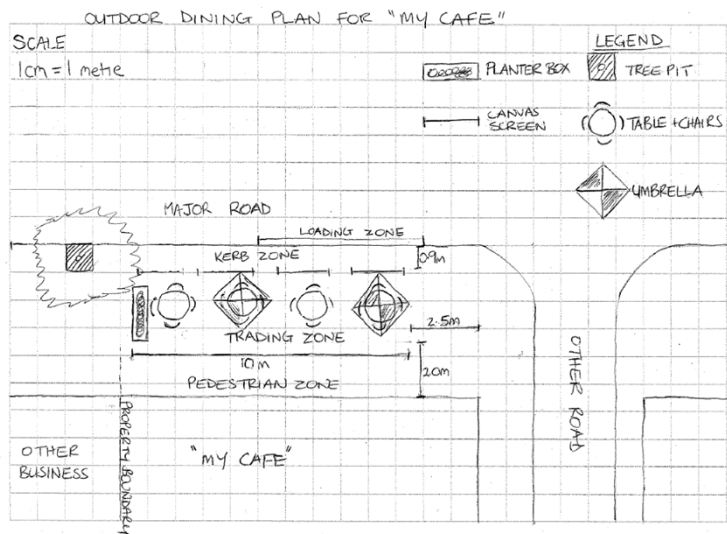 OUTDOOR DINING PLAN FOR "MY CAFE"
SCALE
1cm = 1 metre
LEGEND
PLANTER BOX
TREE PIT
CANVAS
SCREEN
TABLE + CHAIRS
UMBRELLA
MAJOR ROAD
LOADING ZONE
KERB ZONE
0.9m
2.5m
TRADING ZONE
10m
2.0m
PEDESTRIAN ZONE
OTHER ROAD
PROPERTY BOUNDARY
OTHER
BUSINESS
"MY CAFE"